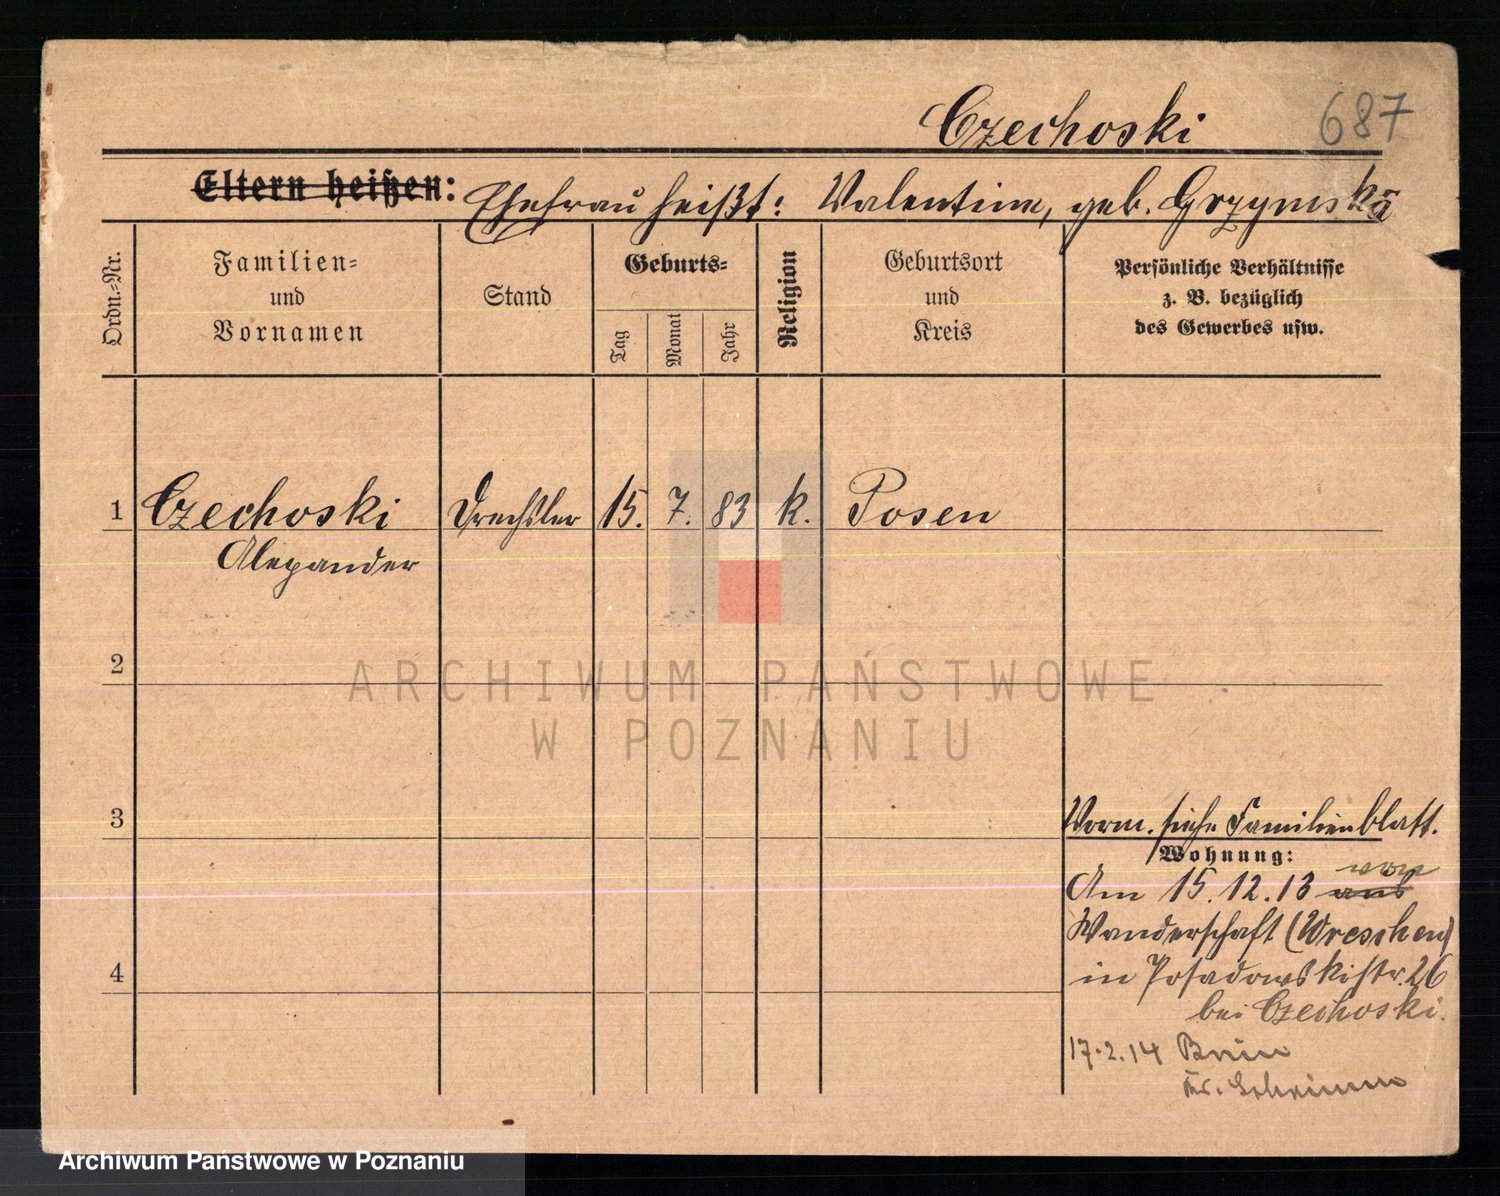 Czechoski 687
Eltern heißen: Ehefrau heißt: Valentine, geb. Grzymska
Ordn.-Nr.
Familien-
und
Vornamen
Stand
Geburts-
Tag
Monat
Jahr
Religion
Geburtsort
und
Kreis
Persönliche Verhältnisse
z. B. bezüglich
des Gewerbes usw.
1 Czechoski Drechsler 15. 7. 83 k. Posen
Alexander
2
3
4
Vorm. siehe Familienblatt.
Wohnung:
von
Am 15.12.13 aus
Wanderschaft (Wreschen)
in Posadowskistr. 26
bei Czechoski.
17.2.14 Bnin
Kr. Schrimm
ARCHIWUM PAŃSTWOWE
W POZNANIU
Archiwum Państwowe w Poznaniu